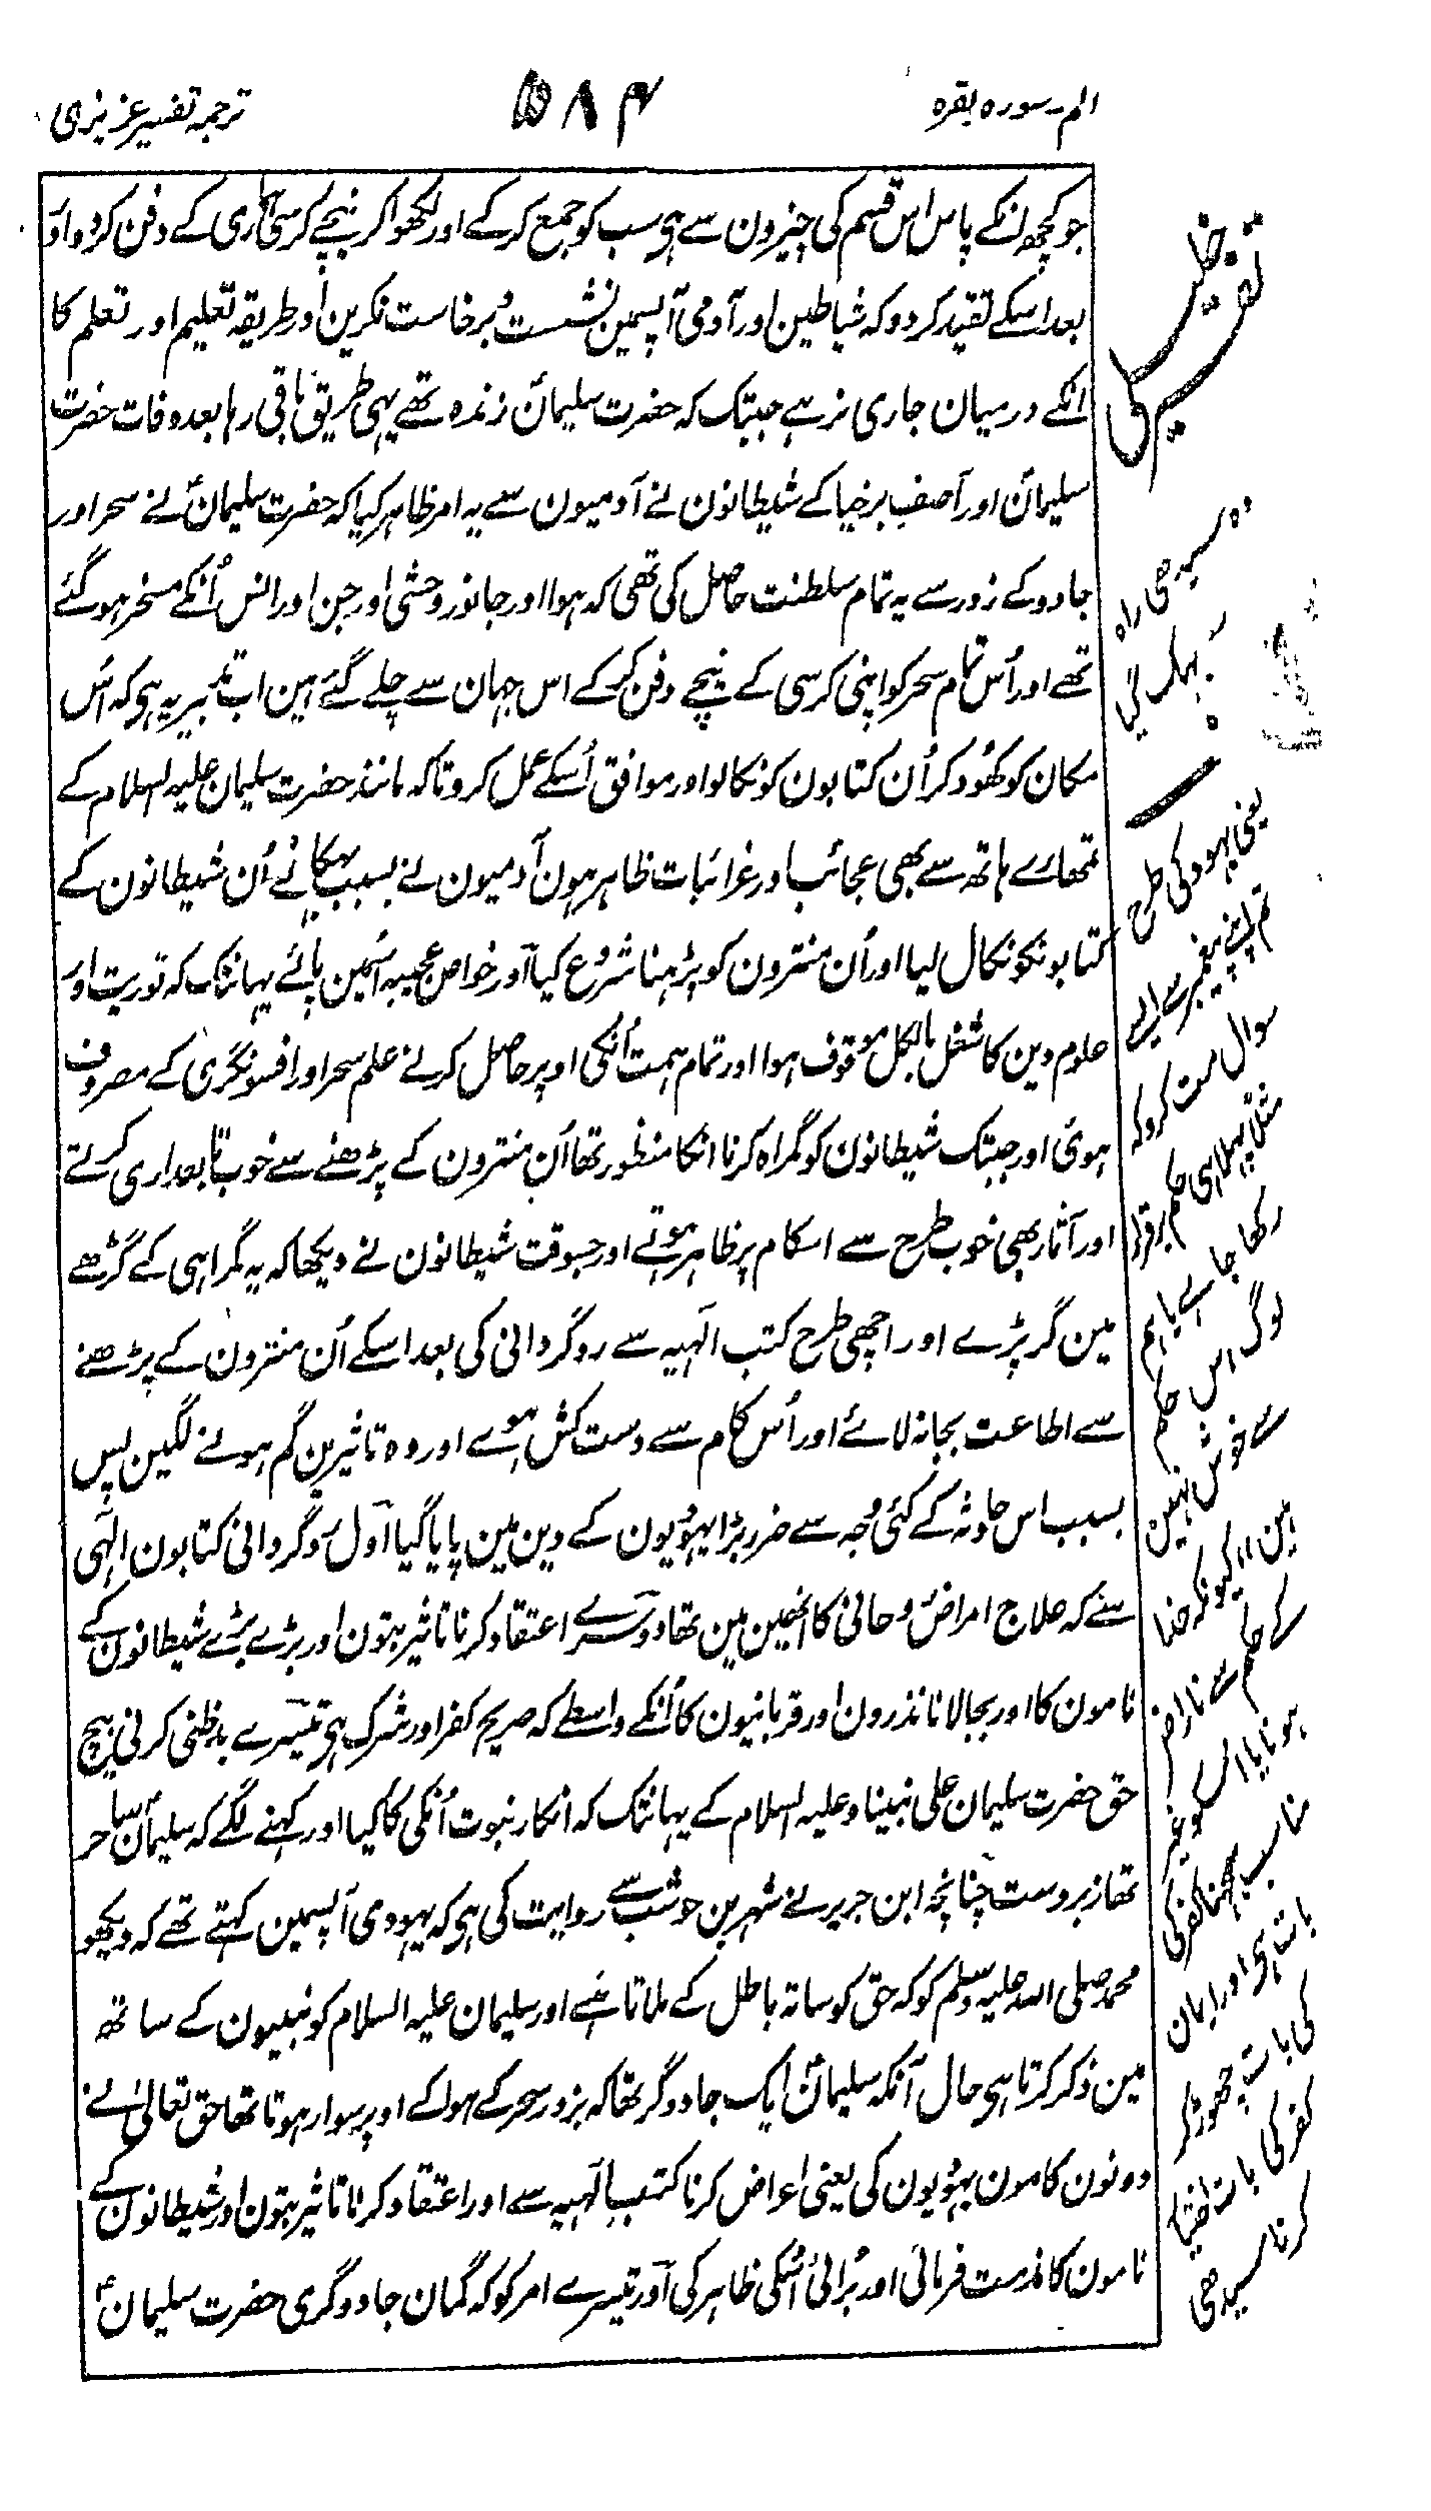 الم-سورہ بقرہ
۵۸۴
ترجمہ تفسیر عزیزی
جو کچھ انکے پاس اس قسم کی چیزون سے ہی سب کو جمع کرکے اور لکھوا کر نیچے کرسی ہماری کے دفن کردو اور
بعد اسکے تقید کردو کہ شیاطین اور آدمی آپسمین نشست برخاست نکرین اور طریقہ تعلیم اور تعلم کا
انکے درمیان جاری نرہے جبتک کہ حضرت سلیمانؑ زندہ تھے یہی طریق باقی رہا بعد وفات حضرت
سلیمانؑ اور آصف برخیا کے شیطانون نے آدمیون سے یہ امر ظاہر کیا کہ حضرت سلیمانؑ نے سحر اور
جادو کے زور سے یہ تمام سلطنت حاصل کی تھی کہ ہوا اور جانور وحشی اور جن اور انس اُنکے مسخر ہوگئے
تھے اور اُس تمام سحر کو اپنی کرسی کے نیچے دفن کرکے اس جہان سے چلے گئے ہین اب تدبیر یہ ہی کہ اُس
مکان کو کھود کر اُن کتابون کو نکالو اور موافق اُسکے عمل کرو تاکہ مانند حضرت سلیمان علیہ السلام کے
تمھارے ہاتھ سے بھی عجائب اور غرائبات ظاہر ہون آدمیون نے بسبب بہکانے اُن شیطانون کے
کتابونکو نکال لیا اور اُن منترون کو پڑھنا شروع کیا اور خواص عجیبہ اسمین پائے یہانتک کہ توریت اور
علوم دین کا شغل بالکل موقوف ہوا اور تمام ہمت اُنکی اوپر حاصل کرنے علم سحر اور افسونگری کے مصروف
ہوئی اور جبتک شیطانون کو گمراہ کرنا انکا منظور تھا اُن منترون کے پڑھنے سے خوب تابعداری کرتے
اور آثار بھی خوب طرح سے اس کام پر ظاہر ہوتے اور جسوقت شیطانون نے دیکھا کہ یہ گمراہی کے گڑھے
مین گر پڑے اور اچھی طرح کتب الٰہیہ سے روگردانی کی بعد اسکے اُن منترون کے پڑھنے
سے اطاعت بجا نہ لائے اور اُس کام سے دست کش ہوے اور وہ تاثیرین گم ہونے لگین پس
بسبب اس حادثہ کے کئی وجہ سے ضرر بڑا یہودیون کے دین مین پایا گیا اول روگردانی کتابون الٰہی
سے کہ علاج امراض روحانی کا انھین مین تھا دوسرے اعتقاد کرنا تاثیر بتون اور بڑے بڑے شیطانون کے
نامون کا اور بجالانا نذرون اور قربانیون کا اُنکے واسطے کہ صریح کفر اور شرک ہی تیسرے بدظنی کرنی بیچ
حق حضرت سلیمان علی نبینا و علیہ السلام کے یہانتک کہ انکار نبوت اُنکی کا کیا اور کہنے لگے کہ سلیمانؑ ساحر
تھا زبردست چنانچہ ابن جریر نے شہر بن حوشب سے روایت کی ہی کہ یہودی آپسمین کہتے تھے کہ دیکھو
محمد صلی اللہ علیہ وسلم کو کہ حق کو ساتہ باطل کے ملاتا ہے اور سلیمان علیہ السلام کو نبیون کے ساتھ
مین ذکر کرتا ہی حال آنکہ سلیمانؑ ایک جادوگر تھا کہ بزور سحر کے ہوا کے اوپر سوار ہوتا تھا حق تعالیٰ نے
دونون کامون یہودیون کی یعنی اعراض کرنا کتب الٰہیہ سے اور اعتقاد کرنا تاثیر بتون اور شیطانون کے
نامون کا مذمت فرمائی اور بُرائی اُسکی ظاہر کی اور تیسرے امر کو کہ گمان جادوگری حضرت سلیمانؑ
وہ سیدھی راہ
سے بہک گیا
یعنی یہود کی طرح
تم اپنے پیغمبر سے ایسے
سوال مت کرو کہ
مثلا پہلا ہی حکم برقرار
رکھا جاے یا ہم
لوگ اس حکم
سے خوش نہین
ہین کیونکہ خدا
کے حکم سے ناراض
ہونا یا اس کو غیر
مناسب کہنا کفر کی
بات ہی اور ایمان
کی بات چھوڑ کر
کفر کی بات اختیار
کرنا سیدھی